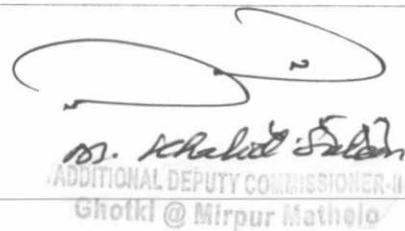 M. Khalid
ADDITIONAL DEPUTY COMMISSIONER-II
Ghotki @ Mirpur Mathelo